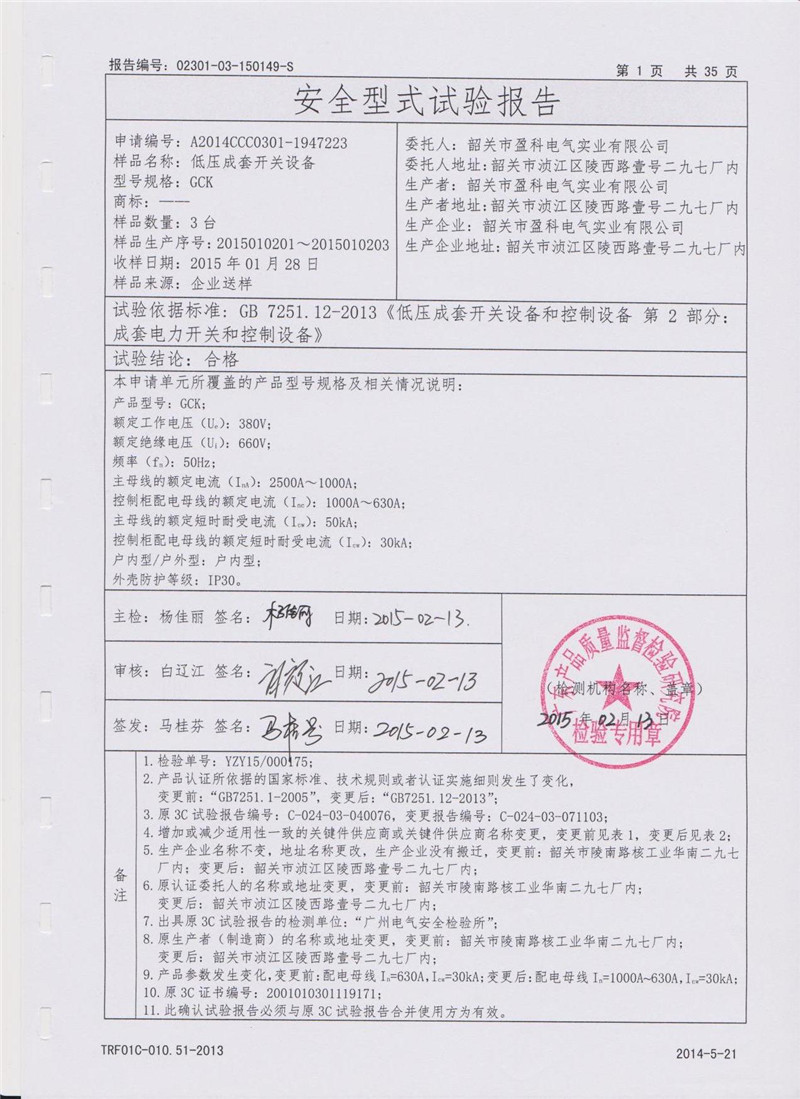 报告编号：02301-03-150149-S
第 1 页 共 35 页
安全型式试验报告
申请编号：A2014CCC0301-1947223
样品名称：低压成套开关设备
型号规格：GCK
商标：——
样品数量：3 台
样品生产序号：2015010201～2015010203
收样日期：2015 年 01 月 28 日
样品来源：企业送样
委托人：韶关市盈科电气实业有限公司
委托人地址：韶关市浈江区陵西路壹号二九七厂内
生产者：韶关市盈科电气实业有限公司
生产者地址：韶关市浈江区陵西路壹号二九七厂内
生产企业：韶关市盈科电气实业有限公司
生产企业地址：韶关市浈江区陵西路壹号二九七厂内
试验依据标准：GB 7251.12-2013《低压成套开关设备和控制设备 第 2 部分：
成套电力开关和控制设备》
试验结论：合格
本申请单元所覆盖的产品型号规格及相关情况说明：
产品型号：GCK；
额定工作电压（Ue）：380V；
额定绝缘电压（Ui）：660V；
频率（fn）：50Hz；
主母线的额定电流（InA）：2500A～1000A；
控制柜配电母线的额定电流（Inc）：1000A～630A；
主母线的额定短时耐受电流（Icw）：50kA；
控制柜配电母线的额定短时耐受电流（Icw）：30kA；
户内型/户外型：户内型；
外壳防护等级：IP30。
主检：杨佳丽 签名：杨佳丽 日期：2015-02-13.
审核：白辽江 签名：白辽江 日期：2015-02-13
签发：马桂芬 签名：马桂芬 日期：2015-02-13
产品质量监督检验研究院
（检测机构名称、盖章）
2015 年 02 月 13 日
检验专用章
备注
1. 检验单号：YZY15/000175；
2. 产品认证所依据的国家标准、技术规则或者认证实施细则发生了变化，
变更前：“GB7251.1-2005”，变更后：“GB7251.12-2013”；
3. 原 3C 试验报告编号：C-024-03-040076，变更报告编号：C-024-03-071103；
4. 增加或减少适用性一致的关键件供应商或关键件供应商名称变更，变更前见表 1，变更后见表 2；
5. 生产企业名称不变，地址名称更改，生产企业没有搬迁，变更前：韶关市陵南路核工业华南二九七
厂内；变更后：韶关市浈江区陵西路壹号二九七厂内；
6. 原认证委托人的名称或地址变更，变更前：韶关市陵南路核工业华南二九七厂内；
变更后：韶关市浈江区陵西路壹号二九七厂内；
7. 出具原 3C 试验报告的检测单位：“广州电气安全检验所”；
8. 原生产者（制造商）的名称或地址变更，变更前：韶关市陵南路核工业华南二九七厂内；
变更后：韶关市浈江区陵西路壹号二九七厂内；
9. 产品参数发生变化，变更前：配电母线 In=630A，Icw=30kA；变更后：配电母线 In=1000A~630A，Icw=30kA；
10. 原 3C 证书编号：2001010301119171；
11. 此确认试验报告必须与原 3C 试验报告合并使用方为有效。
TRF01C-010.51-2013
2014-5-21